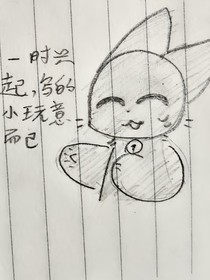 一时兴
起,写的
小玩意
而已